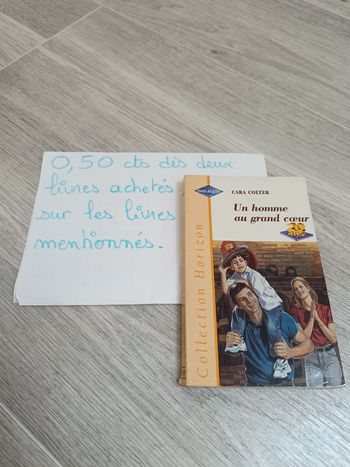 0,50 cts dès deux
livres achetés
sur les livres
mentionnés.
HARLEQUIN
CARA COLTER
Un homme
au grand cœur
20
ANS
Collection Horizon